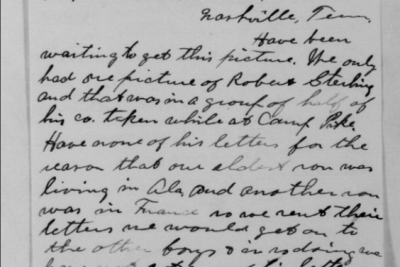 Nashville, Tenn,
Have been
waiting to get this picture. We only
had one picture of Robert Sterling
and that was in a group of half of
his co. taken while at Camp Pike.
Have none of his letters for the
reason that our oldest son was
living in Ala, and another son
was in France so we sent their
letters we would get on to
the other boys & in so doing we